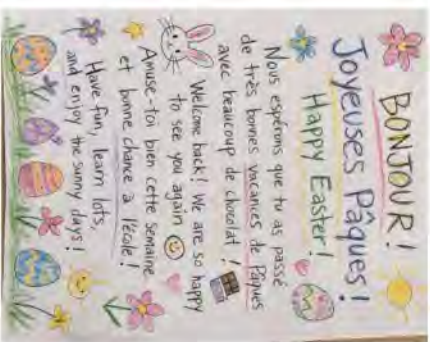 BONJOUR!
Joyeuses Pâques!
Happy Easter!
Nous espérons que tu as passé
de très bonnes vacances de Pâques
avec beaucoup de chocolat!
Welcome back! We are so happy
to see you again
Amuse-toi bien cette semaine
et bonne chance a l'école!
Have fun, learn lots,
and enjoy the sunny days!